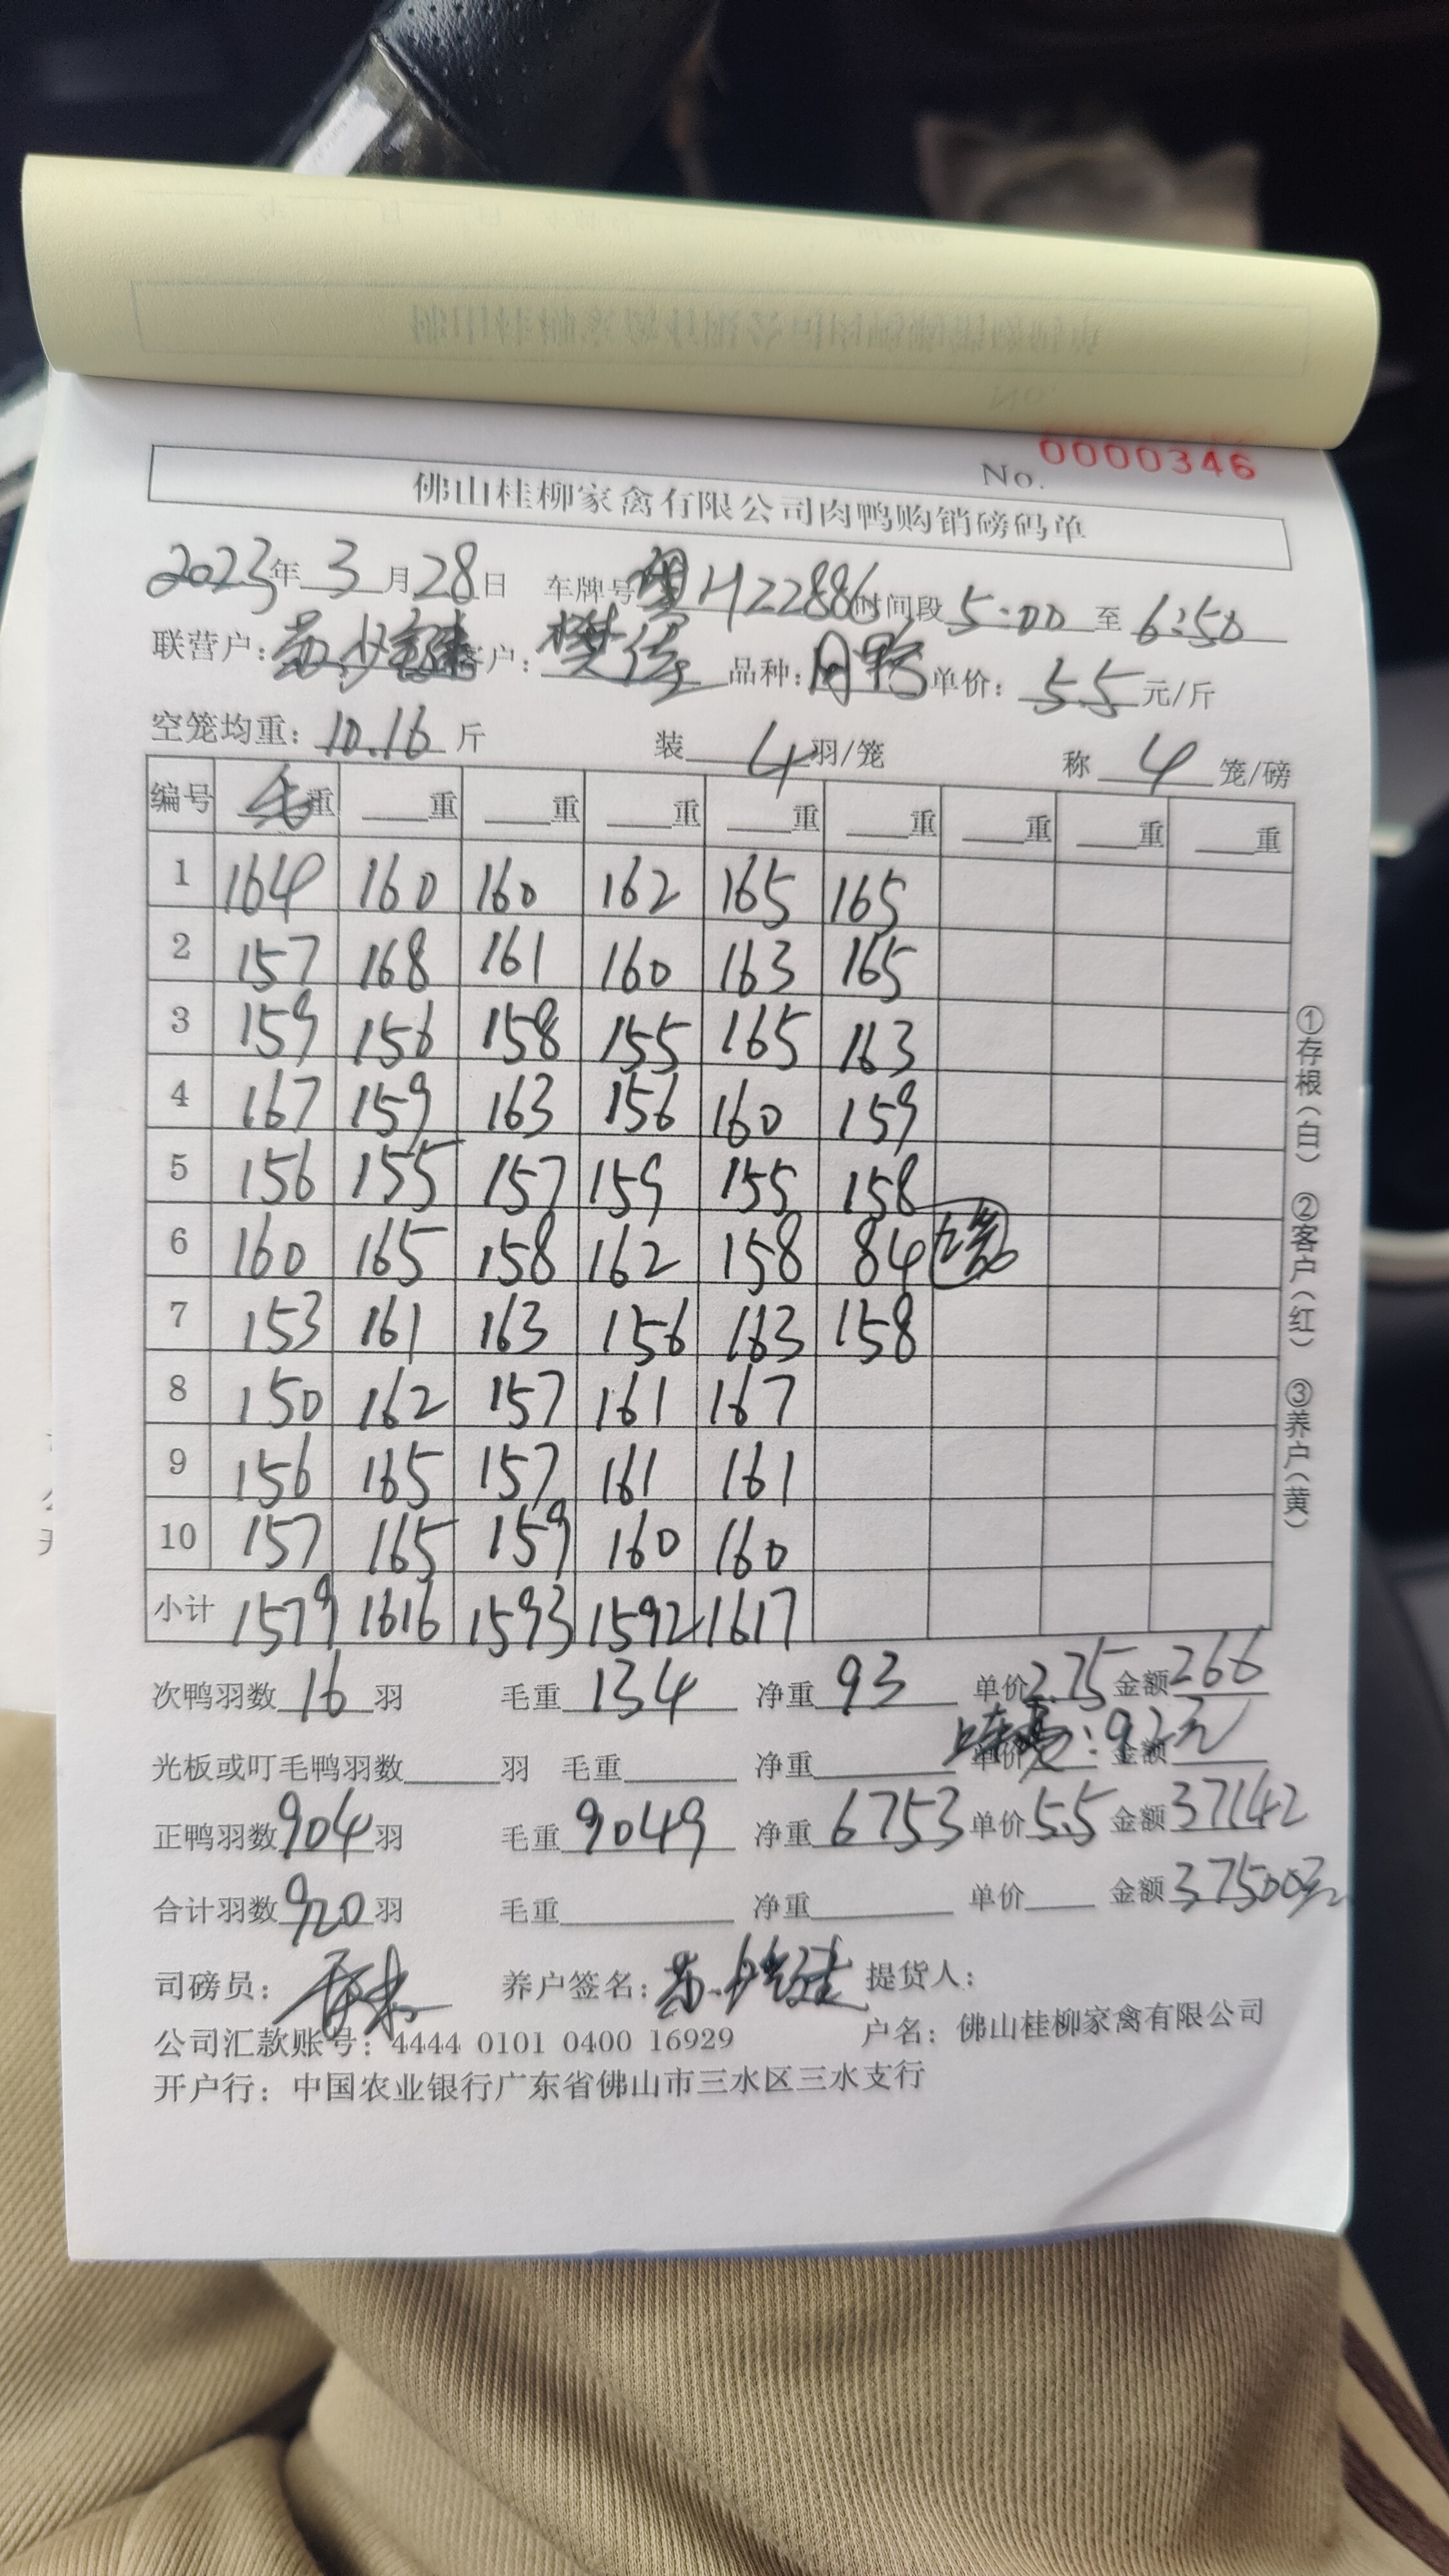 No. 0000346
佛山桂柳家禽有限公司肉鸭购销磅码单
2023年 3 月 28 日 车牌号 粤H22886 时间段 5:00 至 6:50
联营户: 苏 客户: 樊 品种: 单价: 5.5 元/斤
空笼均重: 10.16 斤 装 4 羽/笼 称 4 笼/磅
编号 毛重 重 重 重 重 重 重 重 重
1 164 160 160 162 165 165
2 157 168 161 160 163 165
3 159 156 158 155 165 163
4 167 159 163 156 160 159
5 156 155 157 159 155 158
6 160 165 158 162 158 84
7 153 161 163 156 163 158
8 150 162 157 161 167
9 156 165 157 161 161
10 157 165 159 160 160
小计 1579 1616 1593 1592 1617
次鸭羽数 16 羽 毛重 134 净重 93 单价 2.75 金额 266
: 92元
光板或叮毛鸭羽数 羽 毛重 净重 单价 金额
正鸭羽数 904 羽 毛重 9049 净重 6753 单价 5.5 金额 37142
合计羽数 920 羽 毛重 净重 单价 金额 37500元
司磅员: 养户签名: 苏 提货人:
公司汇款账号: 4444 0101 0400 16929 户名: 佛山桂柳家禽有限公司
开户行: 中国农业银行广东省佛山市三水区三水支行
①存根(白) ②客户(红) ③养户(黄)